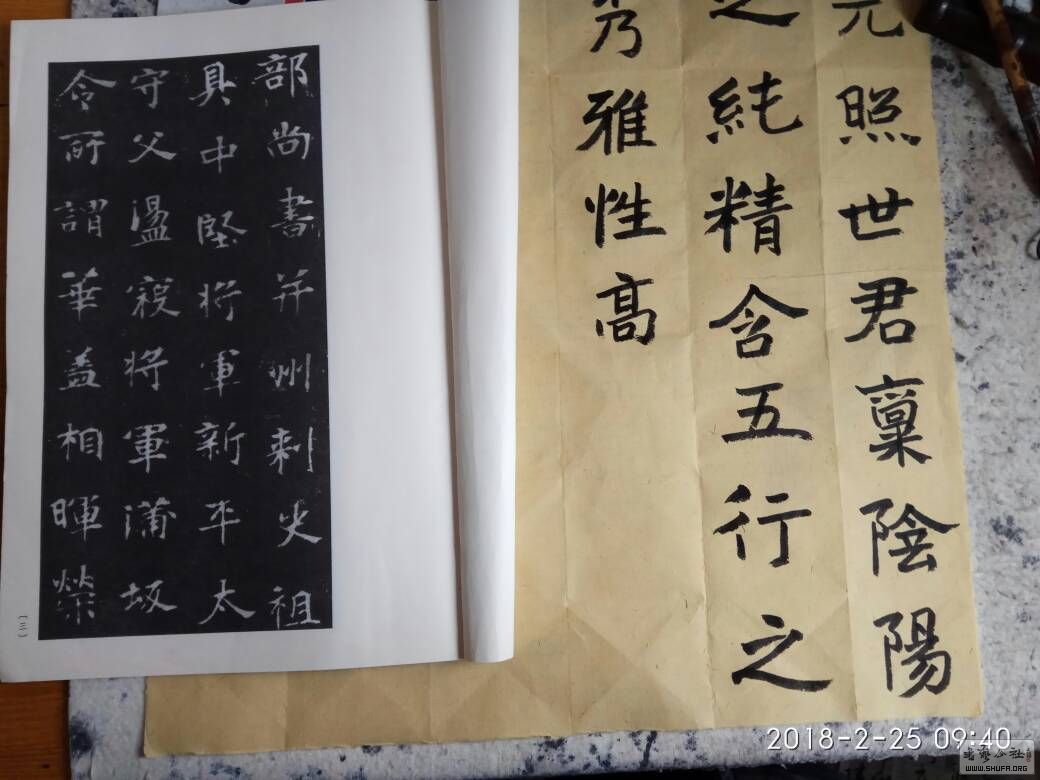 元照世君稟陰陽
之純精含五行之
秀雅性高
部尚書并州刺史祖
具中堅將軍新平太
守父盪寇將軍蒲坂
令所謂華盖相暉榮
〔三〕
2018-2-25 09:40
WWW.SHUFA.ORG